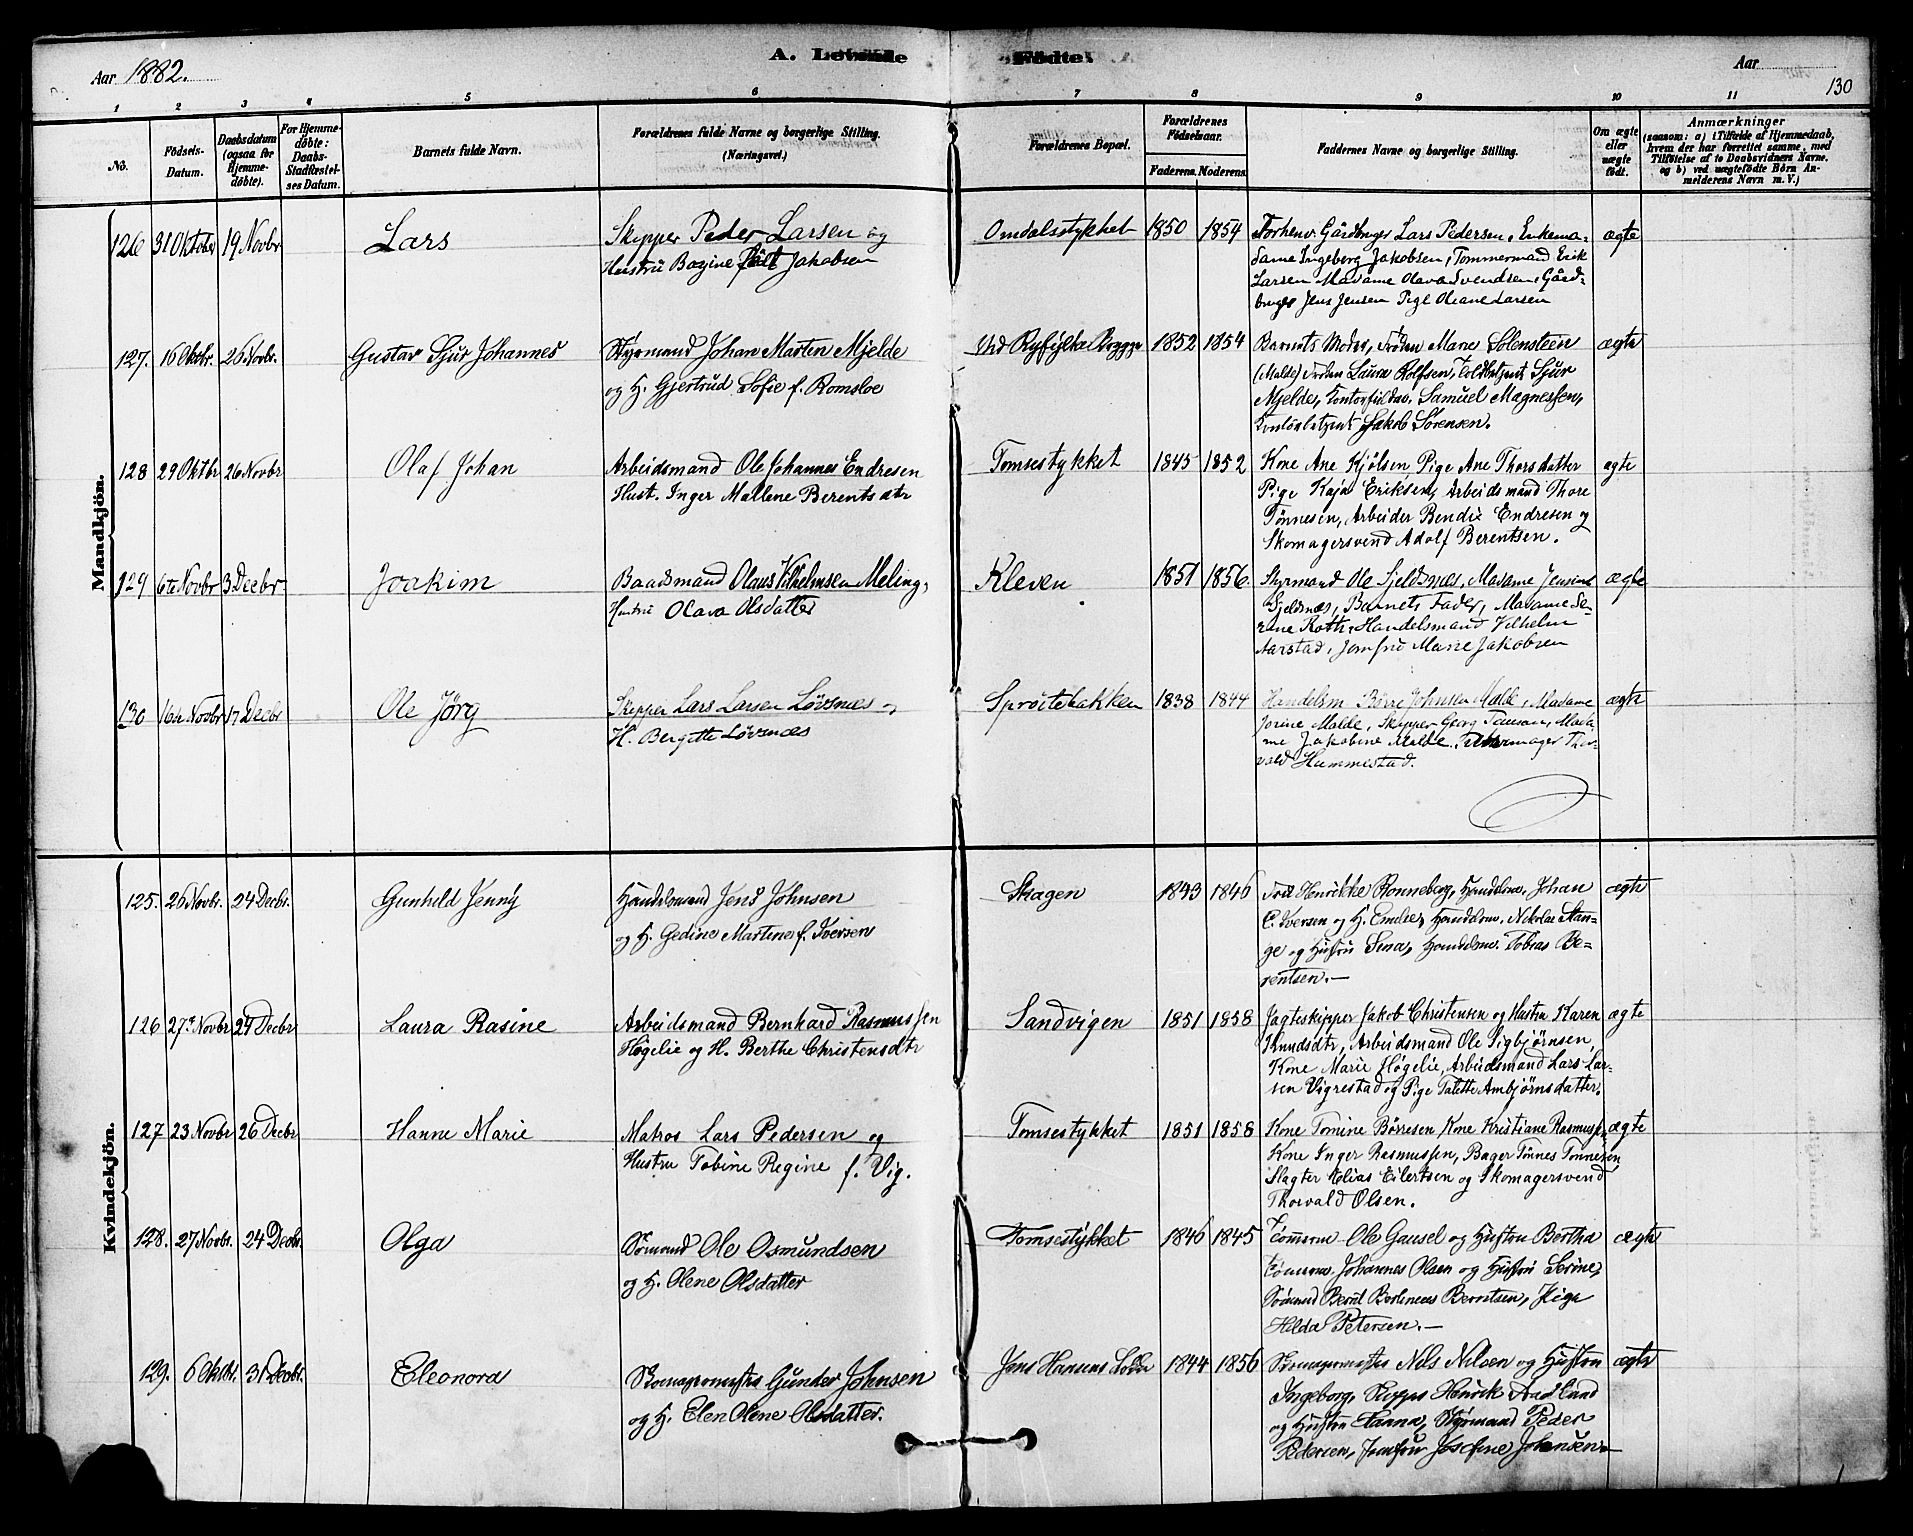 A. Levende Fødte.
Aar 1882.
Aar
130
1 2 3 4 5 6 7 8 9 10 11
No.
Födsels-Datum.
Daabsdatum (ogsaa for Hjemme-döbte).
For Hjemme-döbte: Daabs-Stadfæstel-ses Datum.
Barnets fulde Navn.
Forældrenes fulde Navne og borgerlige Stilling. (Næringsvei.)
Forældrenes Bopæl.
Forældrenes Födselsaar.
Faderens. Moderens.
Faddernes Navne og borgerlige Stilling.
Om ægte eller uægte födt.
Anmærkninger
(saasom: a) i Tilfælde af Hjemmedaab, hvem der har forrettet samme, med Tilföielse af to Daabsvidners Navne, og b) ved uægtefödte Börn An-melderens Navn m. V.)
Mandkjön.
126 31 Oktober 19 Novbr Lars
Skipper Peder Larsen og
Hustru Bazine født Jakobsen
Omdalsstykket 1850 1854
Forhenv. Gårdbruger Lars Pedersen, Enkema-
dame Ingeborg Jakobsen, Tømmermand Erik
Larsen Madame Olava Svendsen, Gård-
bruger Jens Jensen Pige Oliane Larsen
ægte
127. 16 Oktbr. 26 Novbr. Gustav Sjur Johannes
Styrmand Johan Marten Mjelde
og H. Gjertrud Sofie f. Romsloe
Ved Ryfylke Brygge 1852 1854
Barnets Moder, Frøken Marie Solensteen
(Malde) Frøken Laura Rolfsen, Toldbetjent Sjur
Mjelde, Samuel Magnessen,
Jakob Sørensen.
ægte
128 29 Oktbr 26 Novbr Olaf Johan
Arbeidsmand Ole Johannes Endresen
Hust. Inger Mallene Berentsdtr
Tomsestykket 1845 1852
Kone Ane Kjølsen Pige Ane Thorsdatter
Pige Kaja Eriksen, Arbeidsmand Thore
Tønnesen, Arbeider Bendix Endresen og
Skomagersvend Adolf Berentsen.
ægte
129 6te Novbr 3 Decbr. Joakim
Baadsmand Olaus Vilhelmsen Meling,
Hustru Olava Olsdatter
Kleven 1851 1856.
Styrmand Ole Sjeldsnæs, Madame Jensine
Sjeldsnæs, Barnets Fader, Madame Se-
rine Roth, Handelsmand Vilhelm
Aarstad, Jomfru Marie Jakobsen
ægte
130 16de Novbr 17 Decbr Ole Jörg
Skipper Lars Larsen Løvsnæs og
H. Bergitte Løvsnæs
Sprøitebakken 1838 1844
Handelsm Børre Johnsen Malde, Madame
Jorine Malde, Skipper Georg Tansen, Mada-
me Jakobine Malde, Thor-
vald Hummestad.
ægte
Kvindekjön.
125. 26 Novbr. 24 Decbr. Gunhild Jenny
Handelsmand Jens Johnsen
og H. Gedine Martine f. Iversen
Skagen 1843 1846
Henrikke Ronneberg, Handelsm. Johan
E. Iversen og H. Emilie, Handelsm. Nikolai Stan-
ge og Hustru Sina, Handelsm. Tobias Be-
rentsen.—
ægte
126 27de Novbr 24 Decbr Laura Rasine
Arbeidsmand Bernhard Rasmussen
Høgelie og H. Berthe Christensdtr
Sandvigen 1851 1858
Jagteskipper Jakob Christensen og Hustru Karen
Knudsdtr, Arbeidsmand Ole Sigbjørnsen,
Kone Marie Høgelie, Arbeidsmand Lars Lar-
sen Vigrestad og Pige Talette Ambjørnsdatter.
ægte
127 23 Novbr 26 Decbr Hanne Marie
Matros Lars Pedersen og
Hustru Tobine Regine f. Vig.
Tomsestykket 1851 1858
Kone Tomine Børresen Kone Kristiane Rasmussen
Kone Inger Rasmussen, Bager Tönnes Tönnesen
Slagter Helias Eilertsen og Skomagersvend
Thorvald Olsen.
ægte
128. 27 Novbr. 24 Decbr. Olga
Sømand Ole Osmundsen
og H. Olene Olsdatter
Tomsestykket 1846 1845
Tømrerm Ole Gausel og Hustru Bertha
Tømrerm. Johannes Olsen og Hustru Serine,
Sømand Bernt Berlineas Berntsen, Pige
Hilda Petersen.—
ægte
129. 6 Oktbr. 31 Decbr. Eleonora
Skomagermester Gunder Johnsen
og H. Elen Olene Olsdatter.
Jens Hansens Solde 1844 1856
Skomagermester Nels Nilsen og Hustru
Ingeborg, Skipper Henrik Aadlund
og Hustru Hanna, Styrmand Peder
Pedersen, Jomfru Josefine Johansen—
ægte